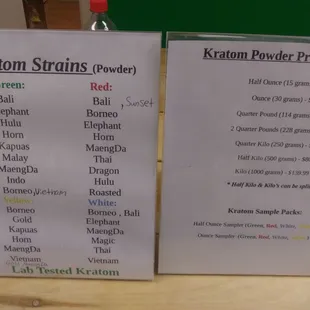 tom Strains (Powder)
Green:
Bali
Elephant
Hulu
Horn
Kapuas
Malay
MaengDa
Indo
Borneo, Vietnam
Yellow:
Borneo
Gold
Kapuas
Horn
MaengDa
Vietnam
Red:
Bali, Sunset
Borneo
Elephant
Horn
MaengDa
Thai
Dragon
Hulu
Roasted
White:
Borneo, Bali
Elephant
MaengDa
Magic
Thai
Vietnam
Lab Tested Kratom
Kratom Powder Pr
Half Ounce (15 gram
Ounce (30 grams) -
Quarter Pound (114 grams)
2 Quarter Pounds (228 grams)
Quarter Kilo (250 grams) -
Half Kilo (500 grams) - $8
Kilo (1000 grams) - $139.99
* Half Kilo & Kilo's can be spli
Kratom Sample Packs:
Half Ounce Sampler (Green, Red, White,
Ounce Sampler (Green, Red, White,